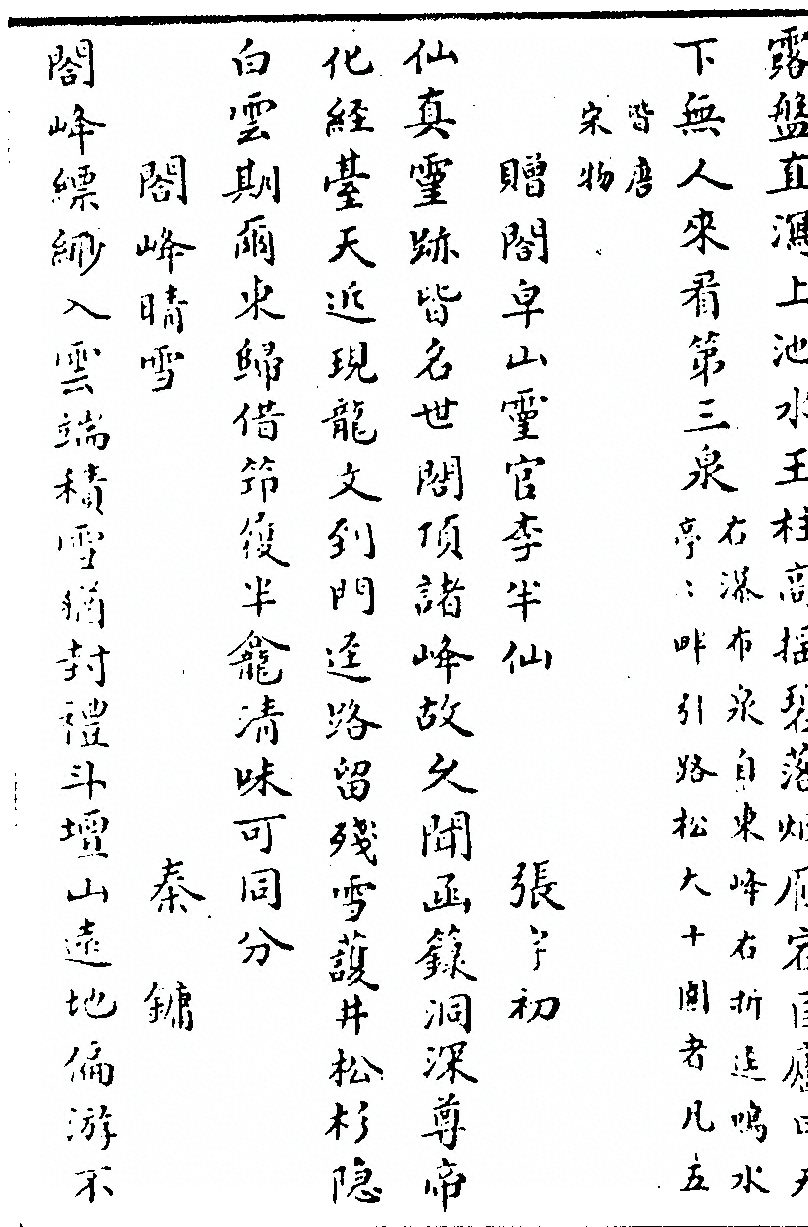 露盤直瀉上池水玉柱高搖碧落
下無人來看第三泉右瀑布泉自東峰右折逕鳴水
亭〻畔引路松大十圍者凡五
皆唐
宋物
贈閤皁山靈官李半仙 張宇初
仙真靈跡皆名世閤頂諸峰故久聞函籙洞深尊帝
化經臺天近現龍文到門逕路留殘雪護井松杉隱
白雲期爾東歸借笻屐半龕清味可同分
閤峰晴雪 秦鏞
閤峰縹緲入雲端積雪猶封禮斗壇山遠地偏游不